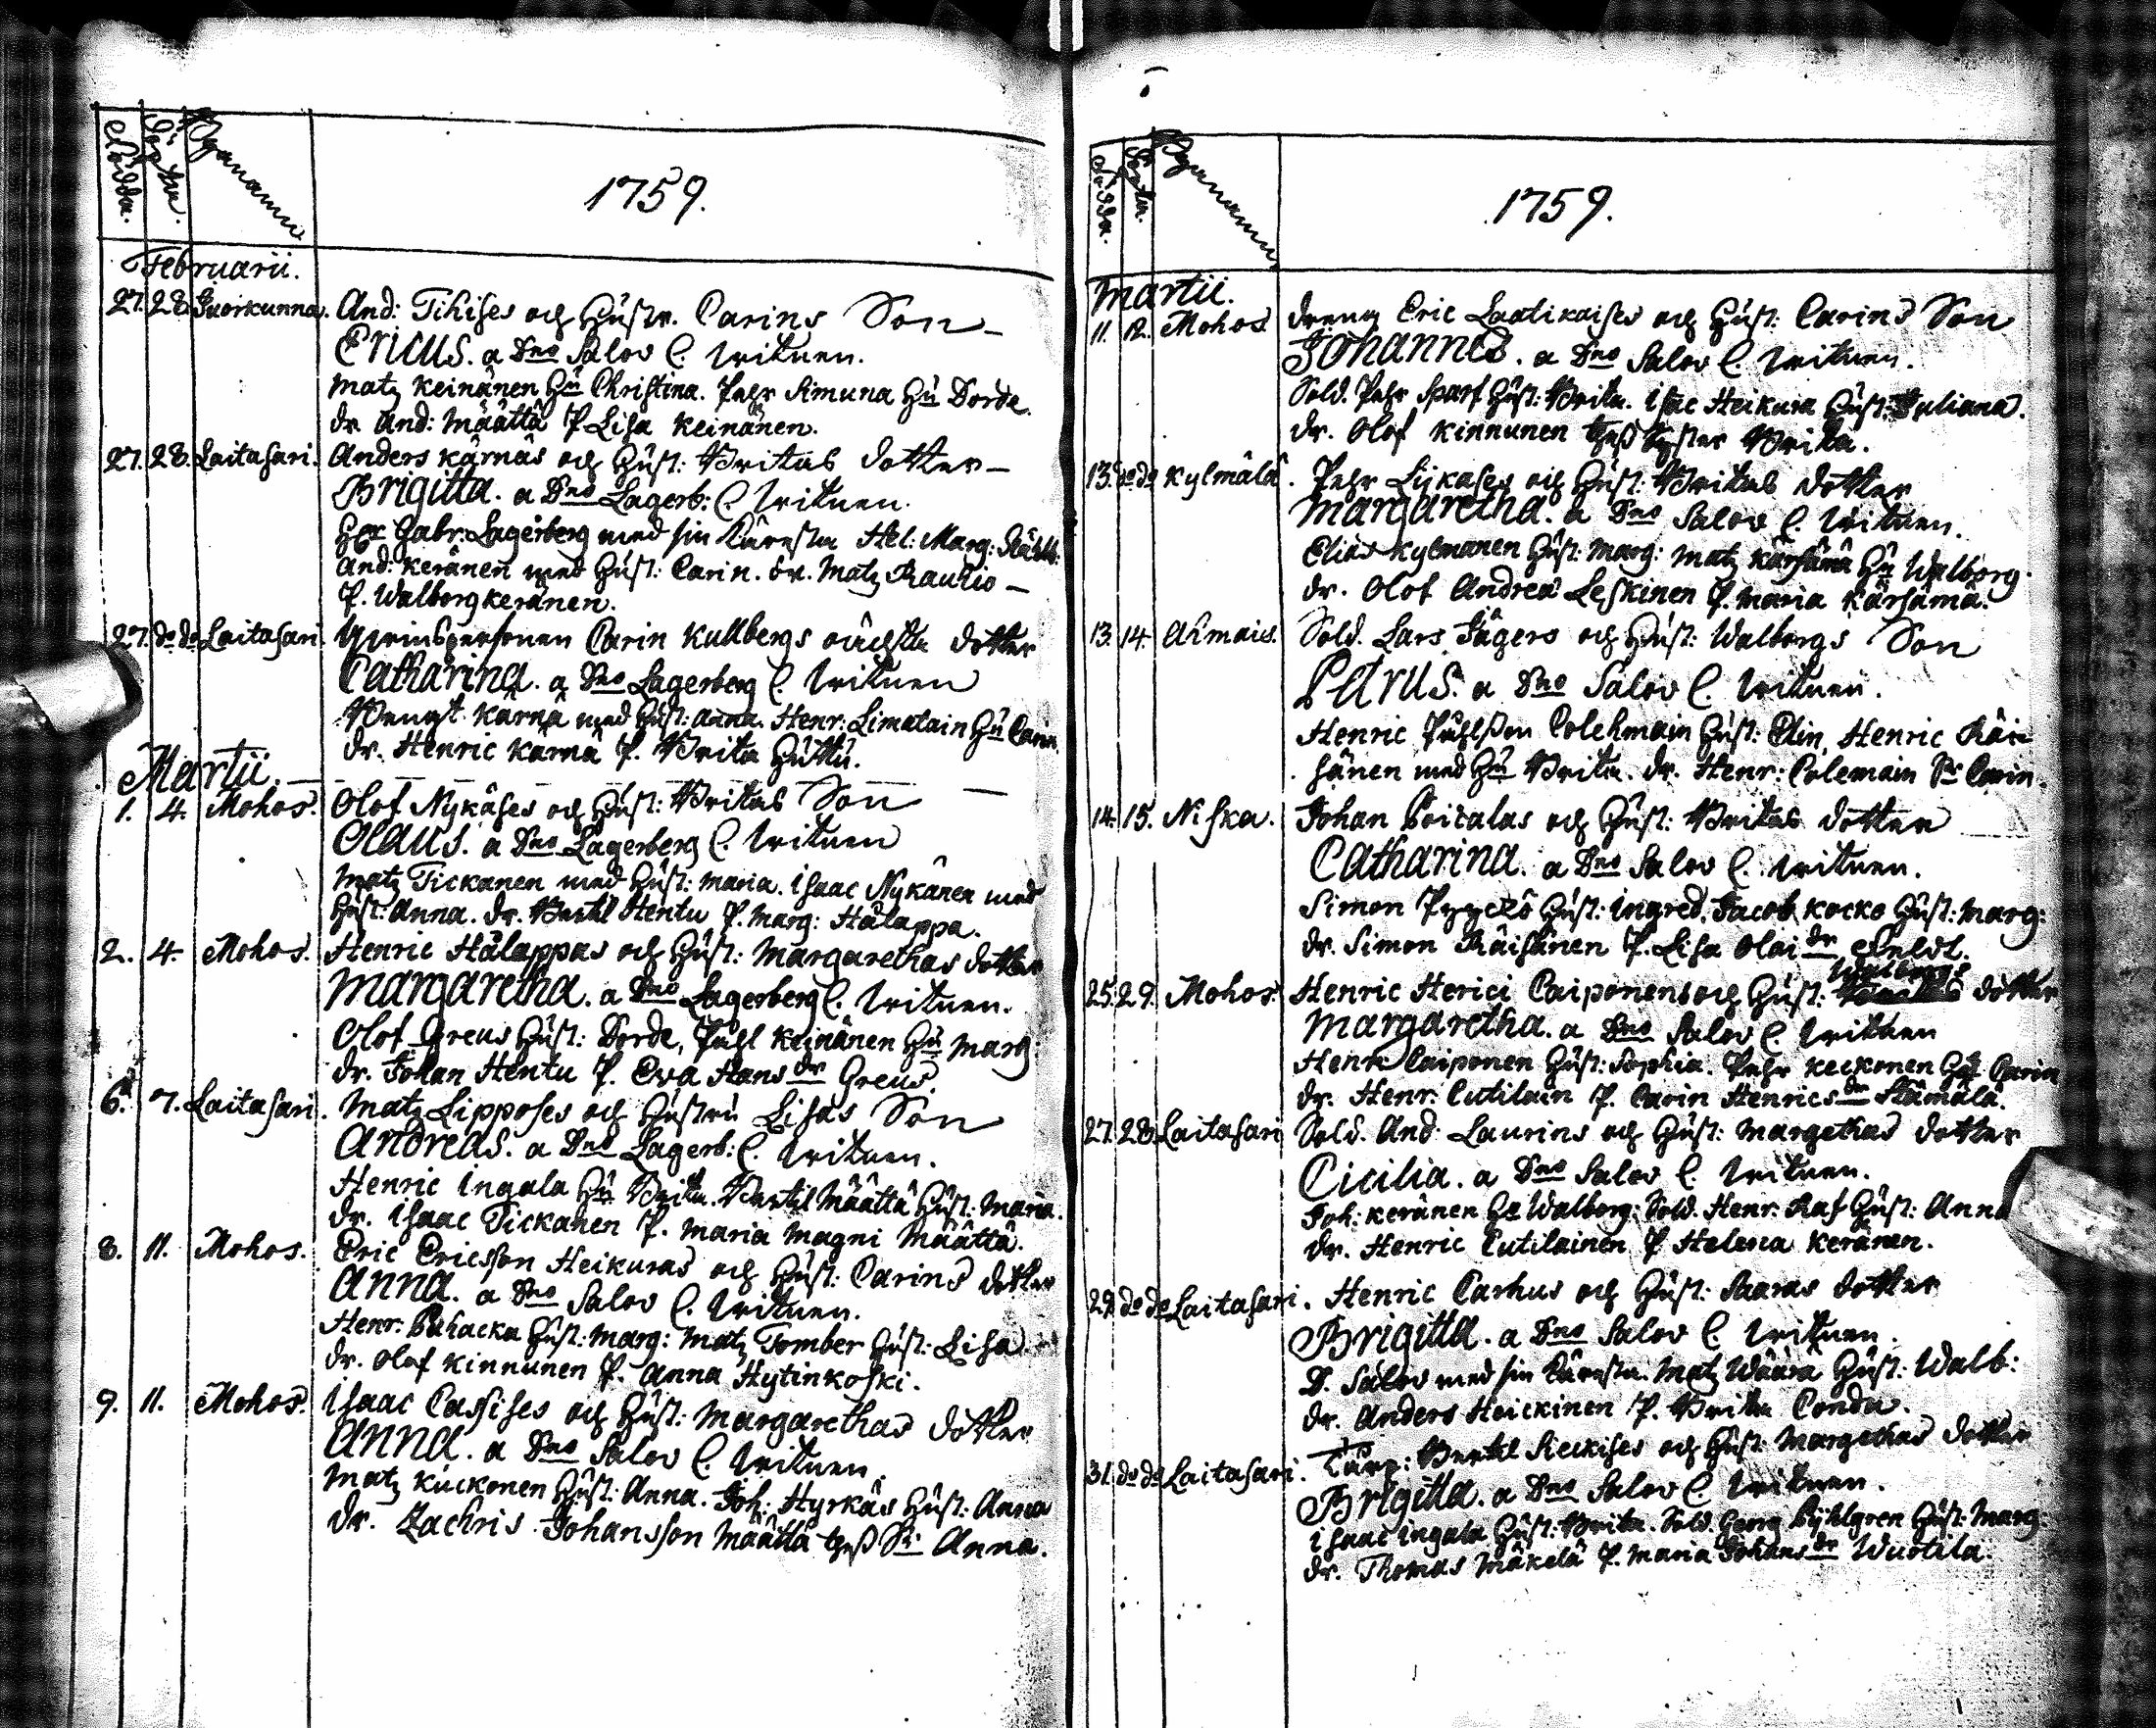 Födda. Döpta. Bynamn
1759.
Februarii.
27. 28. Suorkunna. And: Tihises och Hustr. Carins Son
Ericus. a Dno Salov C. Witnen.
Matz Keinänen Hu Christina. Pehr Simuna Hu Dorde.
dr. And: Määttä P Lisa Keinänen.
27. 28. Laitasari. Anders Kärnäs och Hust: Britas dotter
Brigitta. a Dno Lagerb: C. Witnen.
Hr Gabr: Lagerberg med sin Käresta Hel: Marg:
And: Keränen med Hust: Carin. dr. Matz Rauhio
P. Walborg Keränen.
27. do do Laitasari. Carin Kullbergs oächta dotter
Catharina. a Dno Lagerberg C. Witnen
Bengt Kärnä med Hust: Anna. Henr: Limatain Hu Carin
dr. Henric Kärnä P. Brita Huttu.
Martii.
1. 4. Mohos. Olof Nykäses och Hust: Britas Son
Olaus. a Dno Lagerberg C. Witnen
Matz Tickanen med Hust: Maria. Isaac Nykänen med
Hust: Anna. dr. Bertil Hentu P. Marg: Hälappa.
2. 4. Mohos. Henric Hälappas och Hust: Margarethas dotter
Margaretha. a Dno Lagerberg C. Witnen.
Olof Greus Hust: Dorde, Påhl Keinänen Hu Marg:
dr. Johan Hentu P. Eva Hans dr Greus.
6. 7. Laitasari. Matz Lipposes och Hustru Lisas Son
Andreas. a Dno Lagerb: C. Witnen.
Henric Ingala Hu Brita. Bertil Määttä Hust: Maria.
dr. Isaac Tickanen P. Maria Magni Määttä.
8. 11. Mohos. Eric Ericsson Heikuras och Hust: Carins dotter
Anna. a Dno Salov C. Witnen.
Henr: Pahacka Hust: Marg: Matz Tomber Hust: Lisa
dr. Olof Kinnunen P. Anna Hytinkoski.
9. 11. Mohos. Isaac Cassises och Hust: Margarethas dotter
Anna. a Dno Salov C. Witnen.
Matz Kuckonen Hust: Anna. Joh: Hyrkäs Hust: Anna
dr. Zachris Johansson Määttä thess Sr Anna.
Födda. Döpta. Bynamn
1759.
Martii.
11. 12. Mohos. dreng Eric Laatikaises och Hust: Carins Son
Johannes. a Dno Salov C. Witnen.
Sold. Pehr Sparf Hust: Brita. Isac Heikura Hust: Juliana.
dr. Olof Kinnunen thess Syster Brita.
13. do do Kylmälä. Pehr Lijkases och Hust: Britas dotter
Margaretha. a Dno Salov C. Witnen.
Elias Kylmänen Hust: Marg: Matz Kärsämä Hu Walborg.
dr. Olof Andreæ Leskinen P. Maria Kärsämä.
13. 14. Ahmais. Sold. Lars Jägers och Hust: Walborgs Son
Petrus. a Dno Salov C. Witnen.
Henric Påhlsson Colehmain Hust: Elin, Henric Räi
sänen med Hu Brita. dr. Henr: Colemain Sr Carin.
14. 15. Niska. Johan Poicalas och Hust: Britas dotter
Catharina. a Dno Salov C. Witnen.
Simon Pyyckö Hust: Ingred, Jacob Kocko Hust: Marg:
dr. Simon Räisänen P. Lisa Olai dr
Walborgs
25. 29. Mohos. Henric Herici Caiponens och Hust: dotter
Margaretha. a Dno Salov C. Witnen
Henr: Caiponen Hust: Sophia. Pehr Keckonen Hu Carin
dr. Henr: Cutilain P. Carin Henrics dr Hämälä.
27. 28. Laitasari Sold. And: Laurins och Hust: Margethas dotter
Cicilia. a Dno Salov C. Witnen.
Joh: Keränen Hu Walborg: Sold. Henr: Raf Hust: Anna
dr. Henric Cutilainen P Helena Keränen.
29. do do Laitasari. Henric Carhus och Hust: Saaras dotter
Brigitta. a Dno Salov C. Witnen.
D. Salov med sin Käresta. Matz Wäära Hust: Walb:
dr. Anders Heickinen P. Brita Conda.
31. do do Laitasari. Bertil Sieckises och Hust: Margethas dotter
Brigitta. a Dno Salov C. Witnen.
Isaac Ingala Hust: Brita. Sold. Georg Pihlgren Hust: Marg:
dr. Thomas Mäkelä P. Maria Johans dr Wuotila.